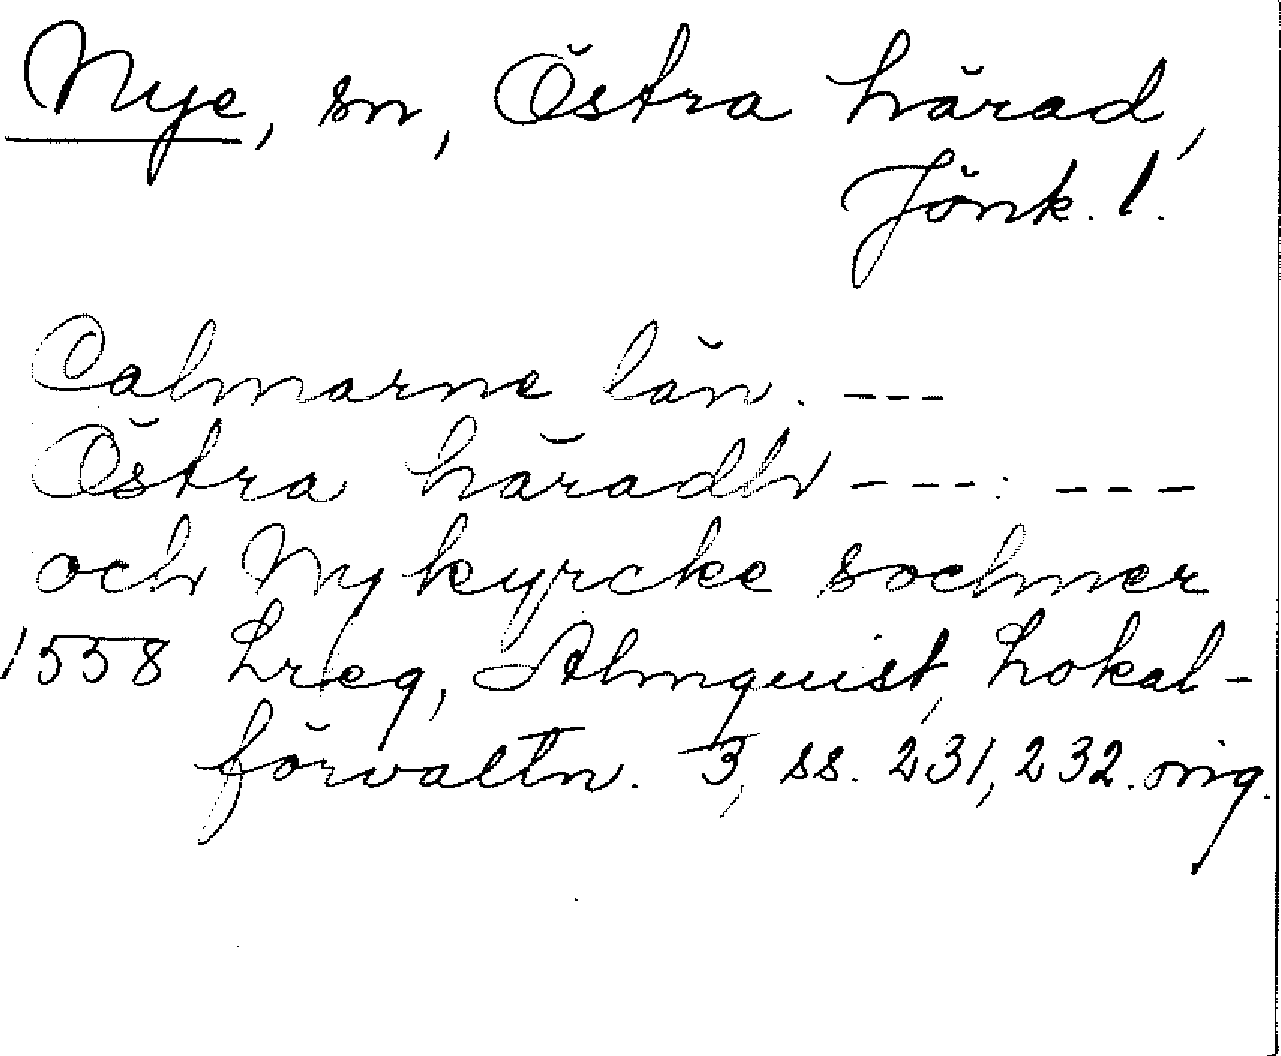 Nye, sn, Östra härad,
Jönk. l.
Calmarne län. ---
Östra häradh ---: ---
och Nykyrcke sochner
1558 Lreg, Almquist, Lokal-
förvaltn. 3, ss. 231, 232. orig.